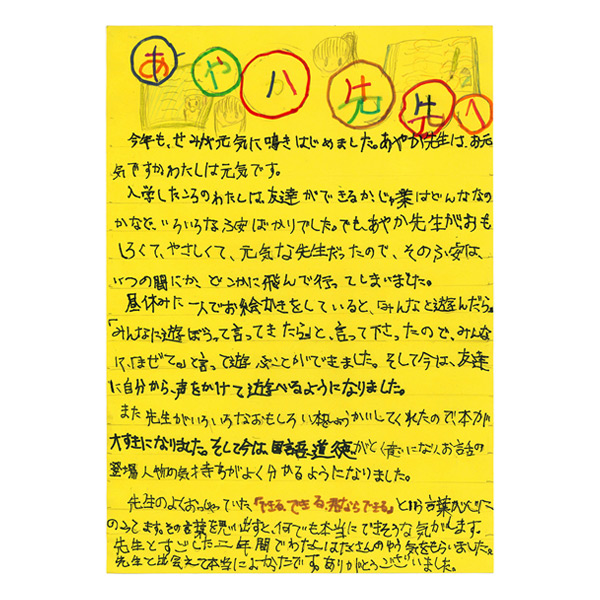 あやか先生へ
今年も、せみが元気に鳴きはじめました。あやか先生は、お元
気ですか。わたしは元気です。
入学したころのわたしは、友達ができるか、じゅ業はどんなな
かなど、いろいろなふ安ばかりでした。でも、あやか先生がおも
しろくて、やさしくて、元気な先生だったので、そのふ安は、
いつの間にか、どこかに飛んで行ってしまいました。
昼休みに一人でお絵かきをしていると、「みんなと遊んだら。」
「みんなに遊ぼうって言ってきたら」と、言って下さったので、みんな
に、「まぜて。」と言って遊ぶことができました。そして今は、友達
に自分から、声をかけて遊べるようになりました。
また先生がいろいろなおもしろい
してくれたので本が
大すきになりました。そして今は、国語、道徳がとく意になり、お話の
登場人物の気持ちがよく分かるようになりました。
先生のよくおっしゃっていた「できる、できる、君ならできる」という言葉が心に
のこってます。その言葉を思い出すと、何でも本当にできそうな気がします。
先生とすごした二年間でわたしはたくさんのゆう気をもらいました。
先生と出会えて本当によかったです。ありがとうございました。